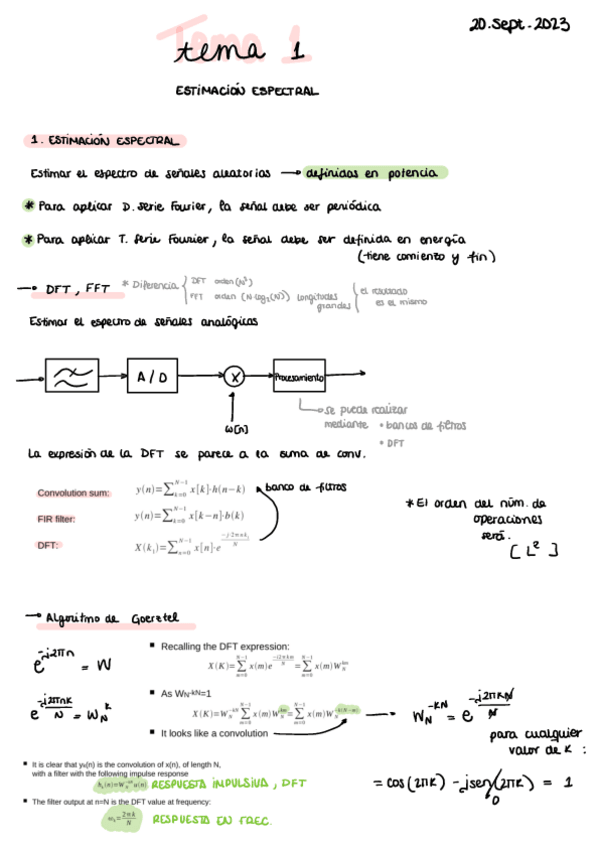 20.Sept.2023
tema 1
ESTIMACIÓN ESPECTRAL
1. ESTIMACIÓN ESPECTRAL
Estimar el espectro de señales aleatorias → definidas en potencia
* Para aplicar D. serie Fourier, la señal debe ser periódica
* Para aplicar T. serie Fourier, la señal debe ser definida en energía
(tiene comienzo y fin)
→ DFT, FFT * Diferencia { DFT orden (N²)
FFT orden (N·log₂(N)) longitudes grandes { el resultado es el mismo
Estimar el espectro de señales analógicas
A/D X Procesamiento
w[n]
se puede realizar
mediante • bancos de filtros
• DFT
La expresión de la DFT se parece a la suma de conv.
Convolution sum: y(n)=∑_{k=0}^{N-1} x[k]·h(n-k) banco de filtros
FIR filter: y(n)=∑_{k=0}^{N-1} x[k-n]·b(k)
DFT: X(k_i)=∑_{n=0}^{N-1} x[n]·e^{-j·2πnk_i/N}
* El orden del núm. de
operaciones
será.
[L²]
→ Algoritmo de Goeretel
▪ Recalling the DFT expression:
X(K)=∑_{m=0}^{N-1} x(m)e^{-j2πkm/N}=∑_{m=0}^{N-1} x(m)W_N^{km}
e^{-j2πn} = W
▪ As W_N^{-kN}=1
e^{-j2πnk/N} = W_N^k
X(K)=W_N^{-kN}∑_{m=0}^{N-1} x(m)W_N^{km}=∑_{m=0}^{N-1} x(m)W_N^{-k(N-m)}
W_N^{-KN} = e^{-j2πKN/N}
▪ It looks like a convolution
para cualquier
valor de K :
= cos(2πK) - jsen(2πK) = 1
0
▪ It is clear that y_k(n) is the convolution of x(n), of length N,
with a filter with the following impulse response
h_k(n)=W_N^{-kn}u(n) RESPUESTA IMPULSIVA, DFT
▪ The filter output at n=N is the DFT value at frequency:
w_k=2πk/N RESPUESTA EN FREC.